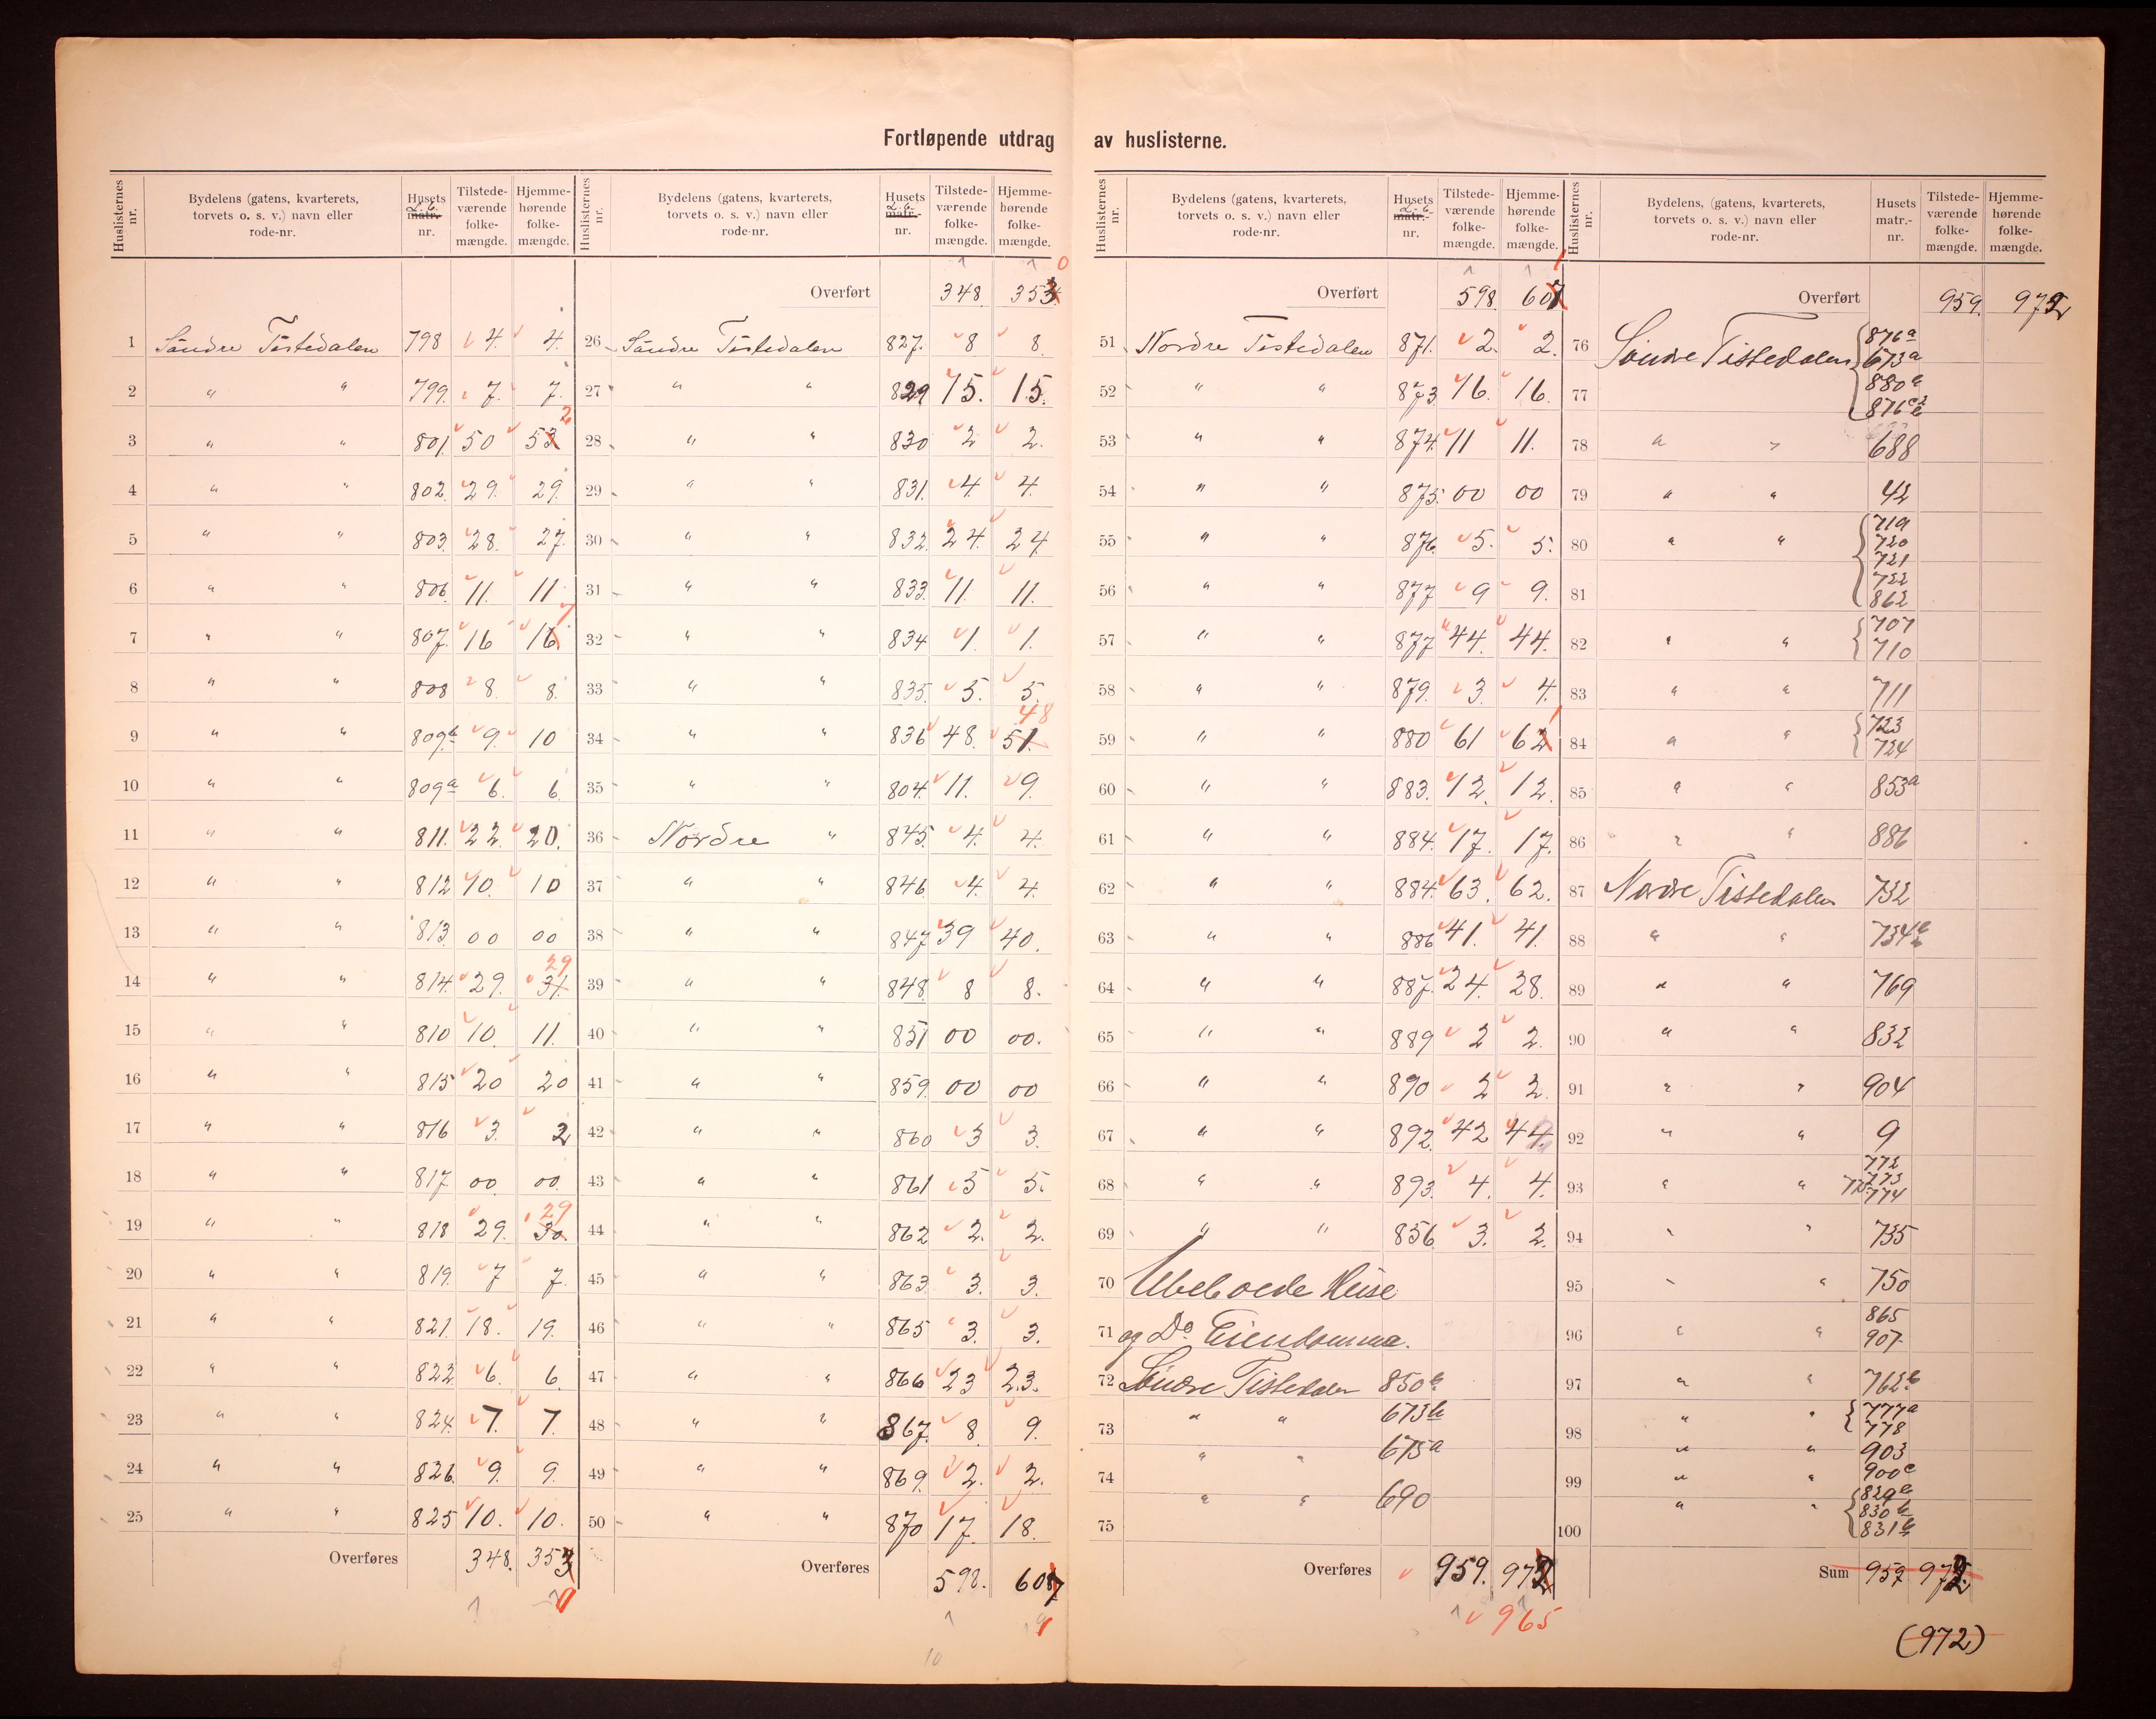 Fortløpende utdrag av huslisterne.
Huslisternes nr. | Bydelens (gatens, kvarterets, torvets o. s. v.) navn eller rode-nr. | Husets matr.- nr. | Tilstede-værende folke-mængde. | Hjemme-hørende folke-mængde.
1 Söndre Tistedalen 798 4. 4.
2 " " 799. 7. 7.
3 " " 801. 50 53 2
4 " " 802. 29. 29.
5 " " 803. 28. 27.
6 " " 806. 11. 11
7 " " 807. 16 16 7
8 " " 808 8. 8.
9 " " 809b 9. 10
10 " " 809a 6. 6.
11 " " 811. 22. 20.
12 " " 812 10. 10
13 " " 813. 00 00
14 " " 814. 29. 31. 29
15 " " 810 10. 11.
16 " " 815 20 20
17 " " 816 3. 2
18 " " 817. 00. 00.
19 " " 818 29. 30. 29
20 " " 819. 7 7.
21 " " 821. 18. 19.
22 " " 822. 6. 6.
23 " " 824. 7. 7.
24 " " 826. 9. 9.
25 " " 825 10. 10.
Overføres 348. 353
Huslisternes nr. | Bydelens (gatens, kvarterets, torvets o. s. v.) navn eller rode-nr. | Husets matr.- nr. | Tilstede-værende folke-mængde. | Hjemme-hørende folke-mængde.
Overført 348. 353 0
26 Söndre Tistedalen 827. 8 8.
27 " " 829 15. 15.
28 " " 830 2 2.
29 " " 831. 4. 4.
30 " " 832. 24. 24.
31 " " 833. 11. 11.
32 " " 834 1. 1.
33 " " 835. 5. 5.
34 " " 836 48. 51. 48
35 " " 804. 11. 9.
36 Nordre " 845. 4. 4.
37 " " 846 4. 4.
38 " " 847 39 40.
39 " " 848. 8 8.
40 " " 851 00 00.
41 " " 859. 00 00
42 " " 860 3 3.
43 " " 861 5 5.
44 " " 862 2. 2.
45 " " 863. 3. 3.
46 " " 865 3. 3.
47 " " 866 23 23.
48 " " 867. 8. 9.
49 " " 869. 2. 2.
50 " " 870 17. 18.
Overføres 598. 607
10
Huslisternes nr. | Bydelens (gatens, kvarterets, torvets o. s. v.) navn eller rode-nr. | Husets matr.- nr. | Tilstede-værende folke-mængde. | Hjemme-hørende folke-mængde.
Overført 598. 607 1
51 Nordre Tistedalen 871. 2. 2.
52 " " 873 16. 16.
53 " " 874. 11 11.
54 " " 875. 00 00
55 " " 876. 5. 5.
56 " " 877 9 9.
57 " " 877 44. 44.
58 " " 879. 3. 4.
59 " " 880 61 62 1
60 " " 883. 12. 12.
61 " " 884. 17. 17.
62 " " 884. 63. 62.
63 " " 886 41. 41.
64 " " 887. 24. 28.
65 " " 889 2 2.
66 " " 890 2 2.
67 " " 892. 42 44.
68 " " 893. 4. 4.
69 " " 856 3. 2.
70 Ubeboede Huse
71 og Do Eiendomme.
72 Söndre Tistedalen 850b
73 " " 673b
" " 675a
74
" " 690
75
Overføres 959. 972
965
Huslisternes nr. | Bydelens, (gatens, kvarterets, torvets o. s. v.) navn eller rode-nr. | Husets matr.- nr. | Tilstede-værende folke-mængde. | Hjemme-hørende folke-mængde.
Overført 959. 972
76 Söndre Tistedalen 876a
673a
77 880a
78 " " 688
79 " " 42
80 " " 719
720
721
81 722
862
82 " " 707
710
83 " " 711
84 " " 723
724
85 " " 853a
86 " " 886
87 Nordre Tistedalen 732
88 " " 734
89 " " 769
90 " " 832
91 " " 904
92 " " 9
93 " " 772
773
774
94 " " 735
95 " " 750
96 " " 865
907
97 " " 762b
98 " " 777a
778
" " 903
99 " " 900c
" " 829b
830b
100 831b
Sum 959 972
(972)